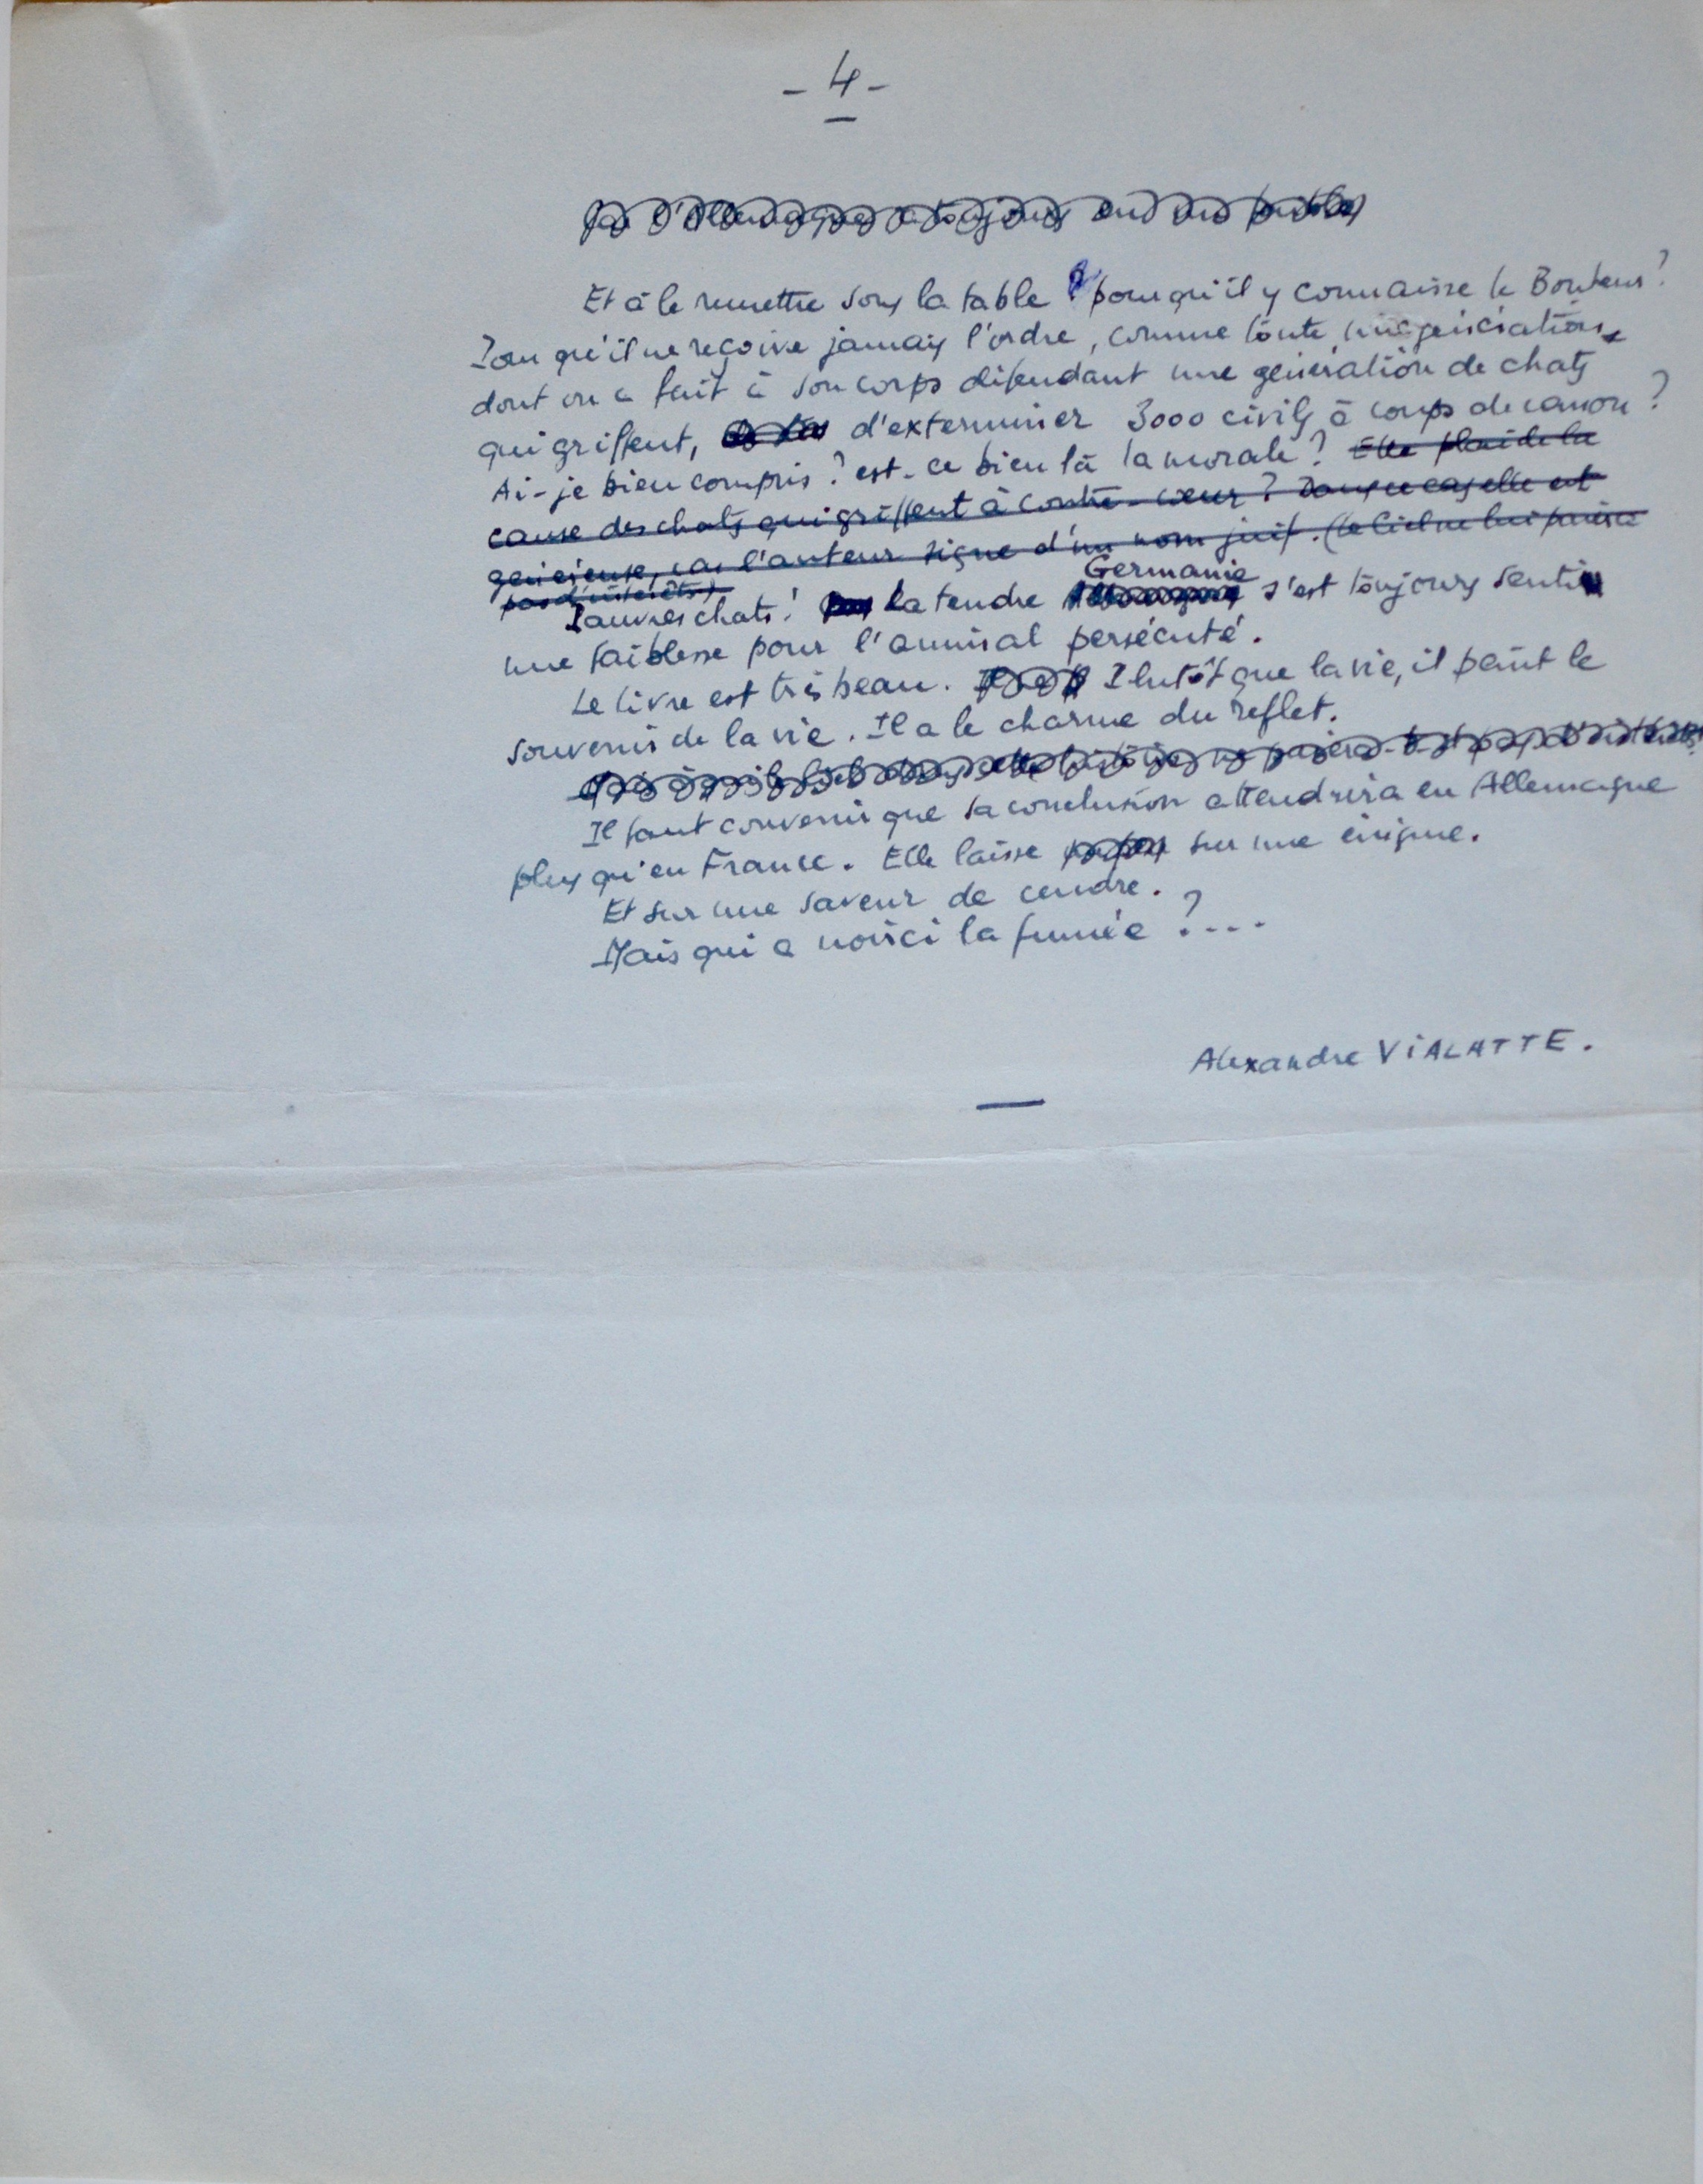 - 4 -
Et à le remettre sous la table ? pour qu'il y connaisse le Bonheur ?
Pour qu'il ne reçoive jamais l'ordre, comme toute une génération,
dont on a fait à son corps défendant une génération de chats
qui griffent, d'exterminer 3000 civils à coups de canon ?
Ai-je bien compris ? est-ce bien là la morale ? Elle plaide la
cause des chats qui griffent à contre-cœur ? Dans ce cas elle est
généreuse, car l'auteur signe d'un nom juif. (Le Ciel ne lui paiera
pas d'intérêts)
Germanie
Pauvres chats ! La tendre s'est toujours senti
une faiblesse pour l'animal persécuté.
Le livre est très beau. Plutôt que la vie, il peint le
souvenir de la vie. Il a le charme du reflet.
Il faut convenir que sa conclusion attendrira en Allemagne
plus qu'en France. Elle laisse sur une énigme.
Et sur une saveur de cendre.
Mais qui a noirci la fumée ?....
Alexandre VIALATTE.